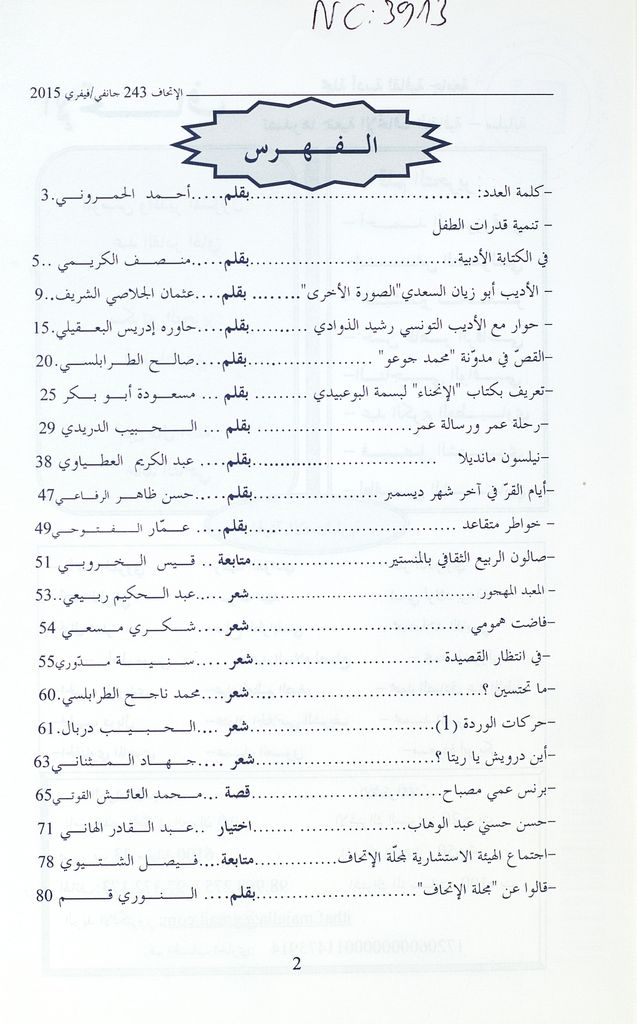 NC: 3913
الإتحاف 243 جانفي/فيفري 2015
الـفـهـرس
-كلمة العدد: ........................بقلم.....أحـمـد الحمـرونـي.3
- تنمية قدرات الطفل
في الكتابة الأدبية........................بقلم.....منـصـف الكريـمـي ..5
- الأديب أبو زيان السعدي"الصورة الأخرى"........ بقلم....عثمان الجلاصي الشريف..9
- حوار مع الأديب التونسي رشيد الذوادي ..........بقلم....حاوره إدريس البعـقيلي.15
-القصّ في مدوّنة "محمد جوعو" ..................بقلم....صالـح الطـرابلـسي.20
-تعريف بكتاب "الإنحناء" لبسمة البوعبيدي .........بقلم ... مسعـودة أبـو بـكر 25
-رحلة عمر ورسالة عمر........................ بقلم ... الـحـبـيب الدريدي 29
-نيلسون مانديلا ........................بقلم.... عبد الكريم العطـياوي 38
-أيام القرّ في آخر شهر ديسمبر ..................بقلم....حسن ظاهـر الرفـاعـي47
- خواطر متقاعد ........................بقلم.... عـمّـار الـفـتـوحـي49
-صالون الربيع الثقافي بالمنستير..................متابعة .. قـيـس الـخـروبـي 51
-المعبد المهجور ........................شعر ....عبد الـحـكيم ربـيعـي..53
-فاضت همومي ........................شعر....شـكـري مـسـعـي 54
-في انتظار القصيدة ........................شعر .....سـنـيـة مـدّوري55
-ما تحتسين ؟........................شعر.....محمد ناجـح الطرابلسي.60
-حركات الوردة (1)........................شعر ....الـحـبـيـب دربال.61
-أين درويش يا ريتا ؟........................شعر ....جـهـاد الـمـثـنـاني63
-برنس عمي مصباح........................ قصة ...مـحمد العائـش القوتـي65
-حسن حسني عبد الوهاب..................اختيار ..عـبـد القـادر الهاني 71
-اجتماع الهيئة الاستشارية لمجلّة الإتحاف..........متابعة....فـيـصل الشـتـيـوي 78
-قالوا عن "مجلة الإتحاف"..................بقلم.... الـنـوري قـم 80
2